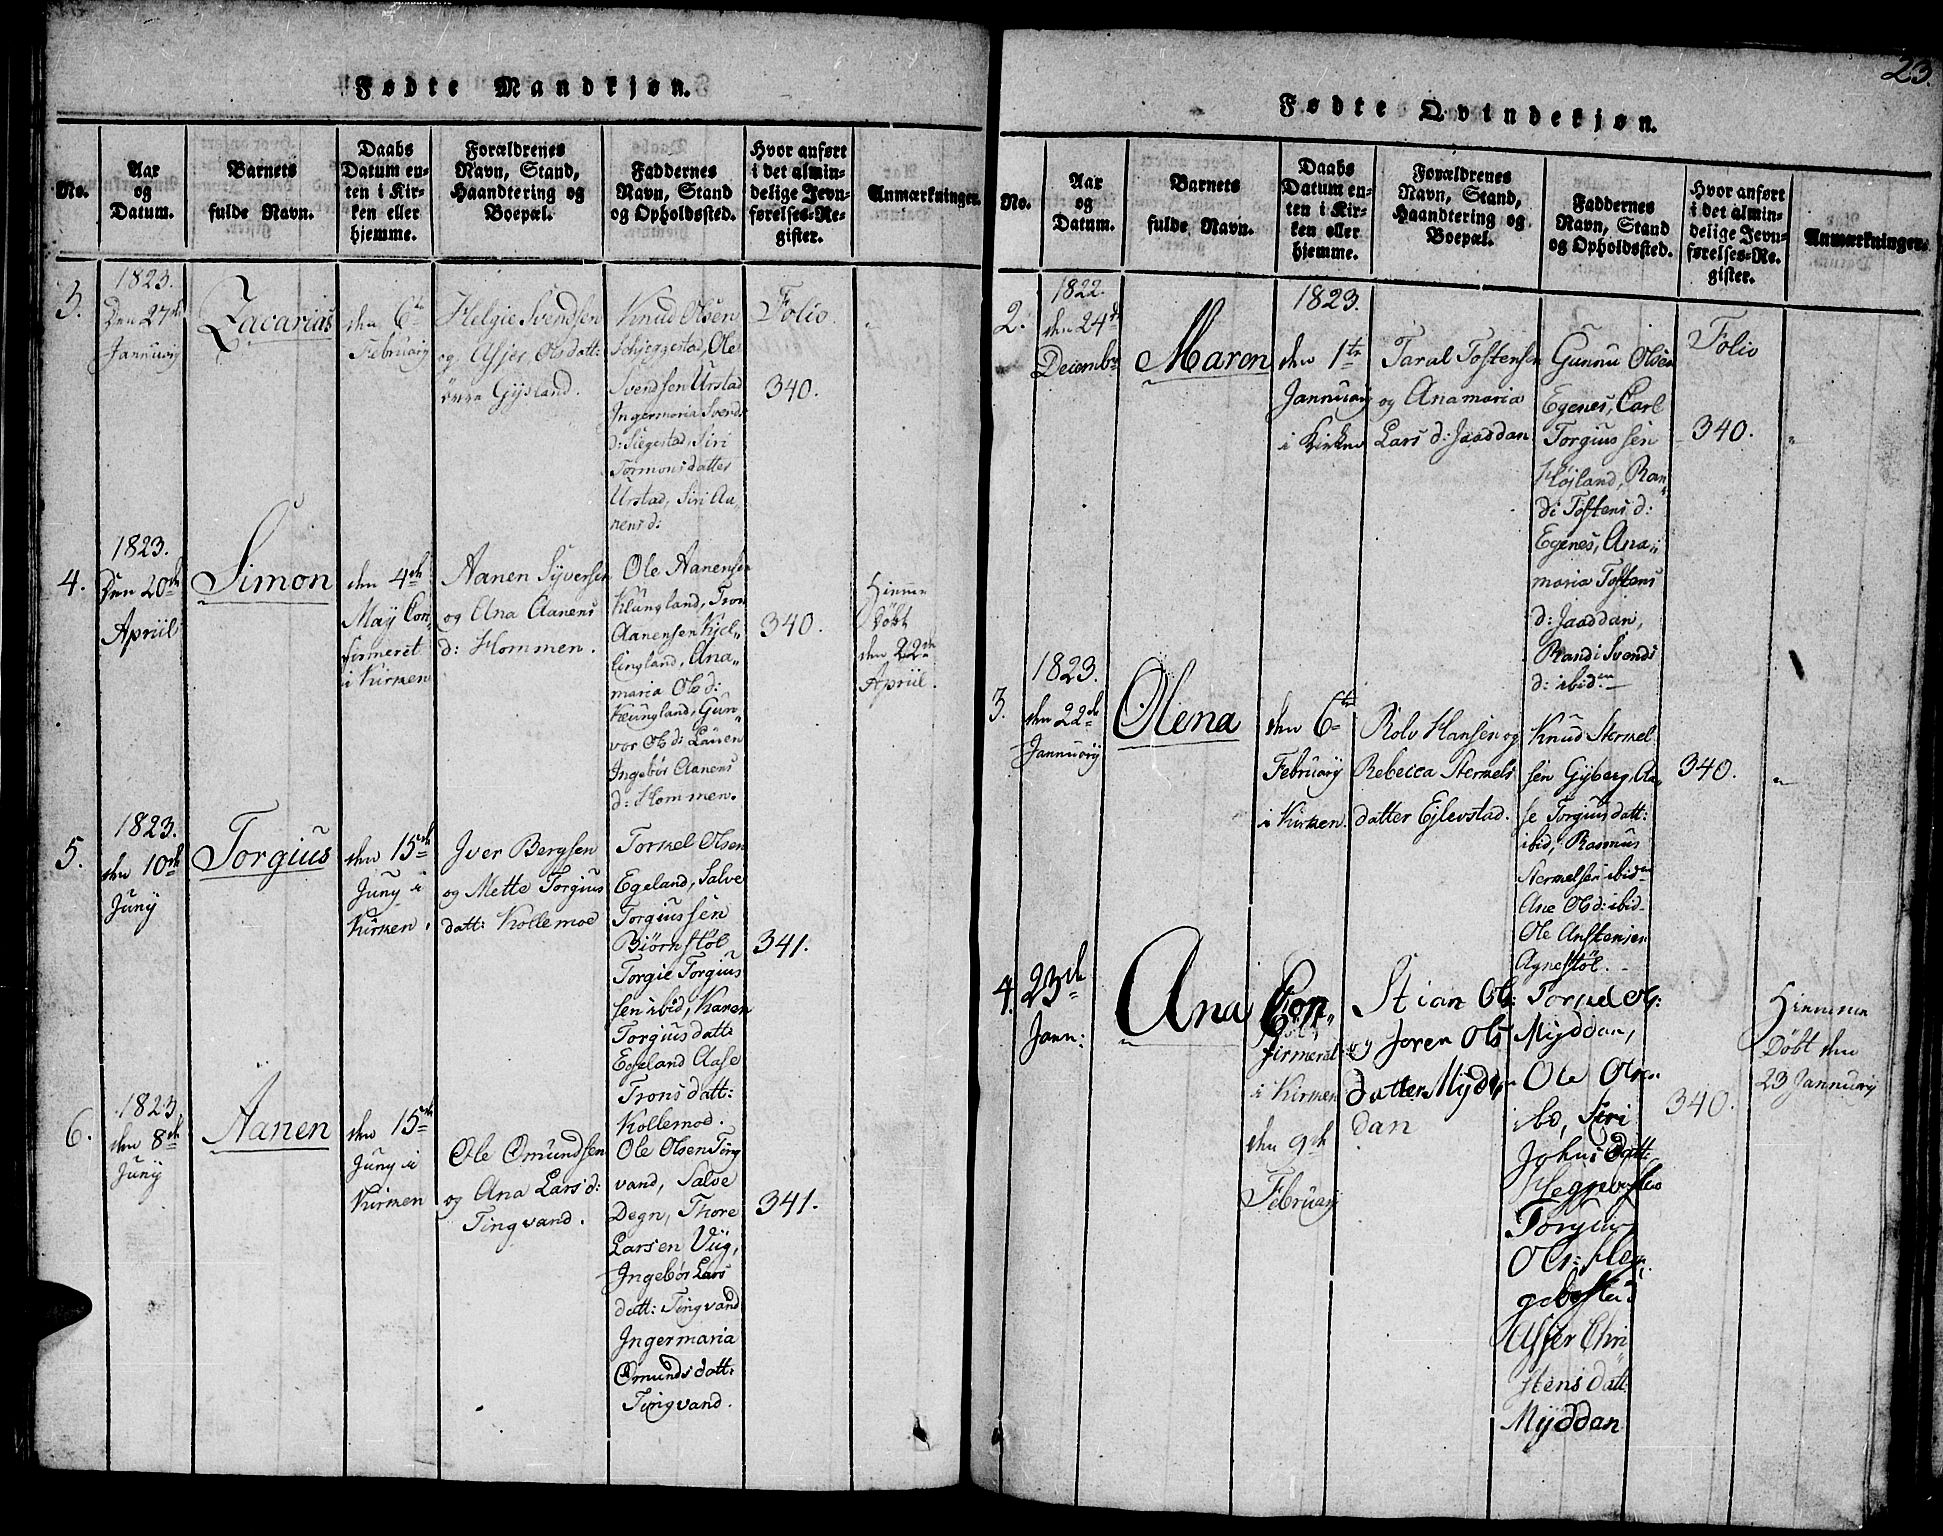 Fødte Mandkjøn.
No.
Aar
og
Datum.
Barnets
fulde Navn.
Daabs
Datum en-
ten i Kir-
ken eller
hjemme.
Forældrenes
Navn, Stand,
Haandtering og
Boepæl.
Faddernes
Navn, Stand
og Opholdssted.
Hvor anført
i det almin-
delige Jevn-
førelses-Re-
gister.
Anmærkninger.
3.
1823.
Den 27de
Januarÿ
Zacarias
den 6te
Februarÿ
Helgie Svendsen
og Asjer Olsdatt:
Gÿsland.
Knud Olsen
Schjeggestad, Ole
Svendsen Urstad
Ingermaria Svends
d: Siegestad, Siri
Tormonsdatter
Urstad, Siri Aa-
nensd:
Folio.
340.
4.
1823.
Den 20de
Apriil
Simon
den 4de
Maÿ Con-
firmeret
i Kirken
Aanen Sÿversen
og Ana Aanens
d: Hommen.
Ole Aanensen
Klungland, Tron
Aanensen Kiel-
lingland, Ana-
maria Olsd:
Klungland, Gun-
vor Olsd: Lauen
Ingebor Aanens
d: Hommen.
340.
Hiemme
Døbt
den 22de
Apriil.
5.
1823.
den 10de
Junÿ
Torgius
den 15de
Junÿ i
Kirken.
Iver Bergsen
og Mette Torgius
datt: Kollemoe
Tormel Olsen
Egeland, Salve
Torgiussen
Biørnstøl
Torgie Torgius
sen ibid, Karen
Torgiusdatt:
Egeland Aase
Tronsdatt:
Kollemoe.
341.
6.
1823.
den 8de
Junÿ
Aanen
den 15de
Junÿ i
Kirken
Ole Omundsen
og Ana Larsd:
Tingvand.
Ole Olsen Ting
vand, Salve
Degn, Thore
Larsen Viig,
Ingebor Lars
datt: Tingvand
Ingermaria
Omundsdatt:
Tingvand.
341.
23.
Fødte Qvindekjøn.
No.
Aar
og
Datum.
Barnets
fulde Navn.
Daabs
Datum en-
ten i Kir-
ken eller
hjemme.
Forældrenes
Navn, Stand,
Haandtering og
Boepæl.
Faddernes
Navn, Stand
og Opholdssted.
Hvor anført
i det almin-
delige Jevn-
førelses-Re-
gister.
Anmærkninger.
2.
1822.
den 24de
Decembr
Maren
1823.
den 1te
Jannuarÿ
i Kirken
Taral Tostensen
og Anamaria
Lars d: Jaaddan
Gunnu Olsen
Egenes, Carl
Torgiussen
Høÿland, Ran-
di Tostens d:
Egenes, Ana-
maria Tostens
d: Jaaddan,
Randi Svends
d: ibiden
Folio
340.
3.
1823.
den 22de
Jannuarÿ
Olena
den 6te
Februarÿ
i Kirken.
Rolv Hansen og
Rebecca Stermels
datter Ejlevstad.
Knud Stermel
sen Gÿberg, Aa-
se Torgiusdatt:
ibid, Rasmus
Stermelsen ibiden
Ane Olsd: ibid
Ole Anstensen
Agnestøl.
340.
4.
23de
Jann:
Ana
Con-
firmeret
i Kirken
den 9de
Februarÿ
Stian Ols:
og Joren Ols
datter Mÿd-
dan
Tormel Ols:
Mÿddan,
Ole Olsen
ibd, Siri
Johns datt:
Heggebostad
Torgius
Ols: Heg-
gebosta
Asser Chri
stens datt:
Mÿddan
340.
Hiemme
Døbt den
23 Jannuarÿ